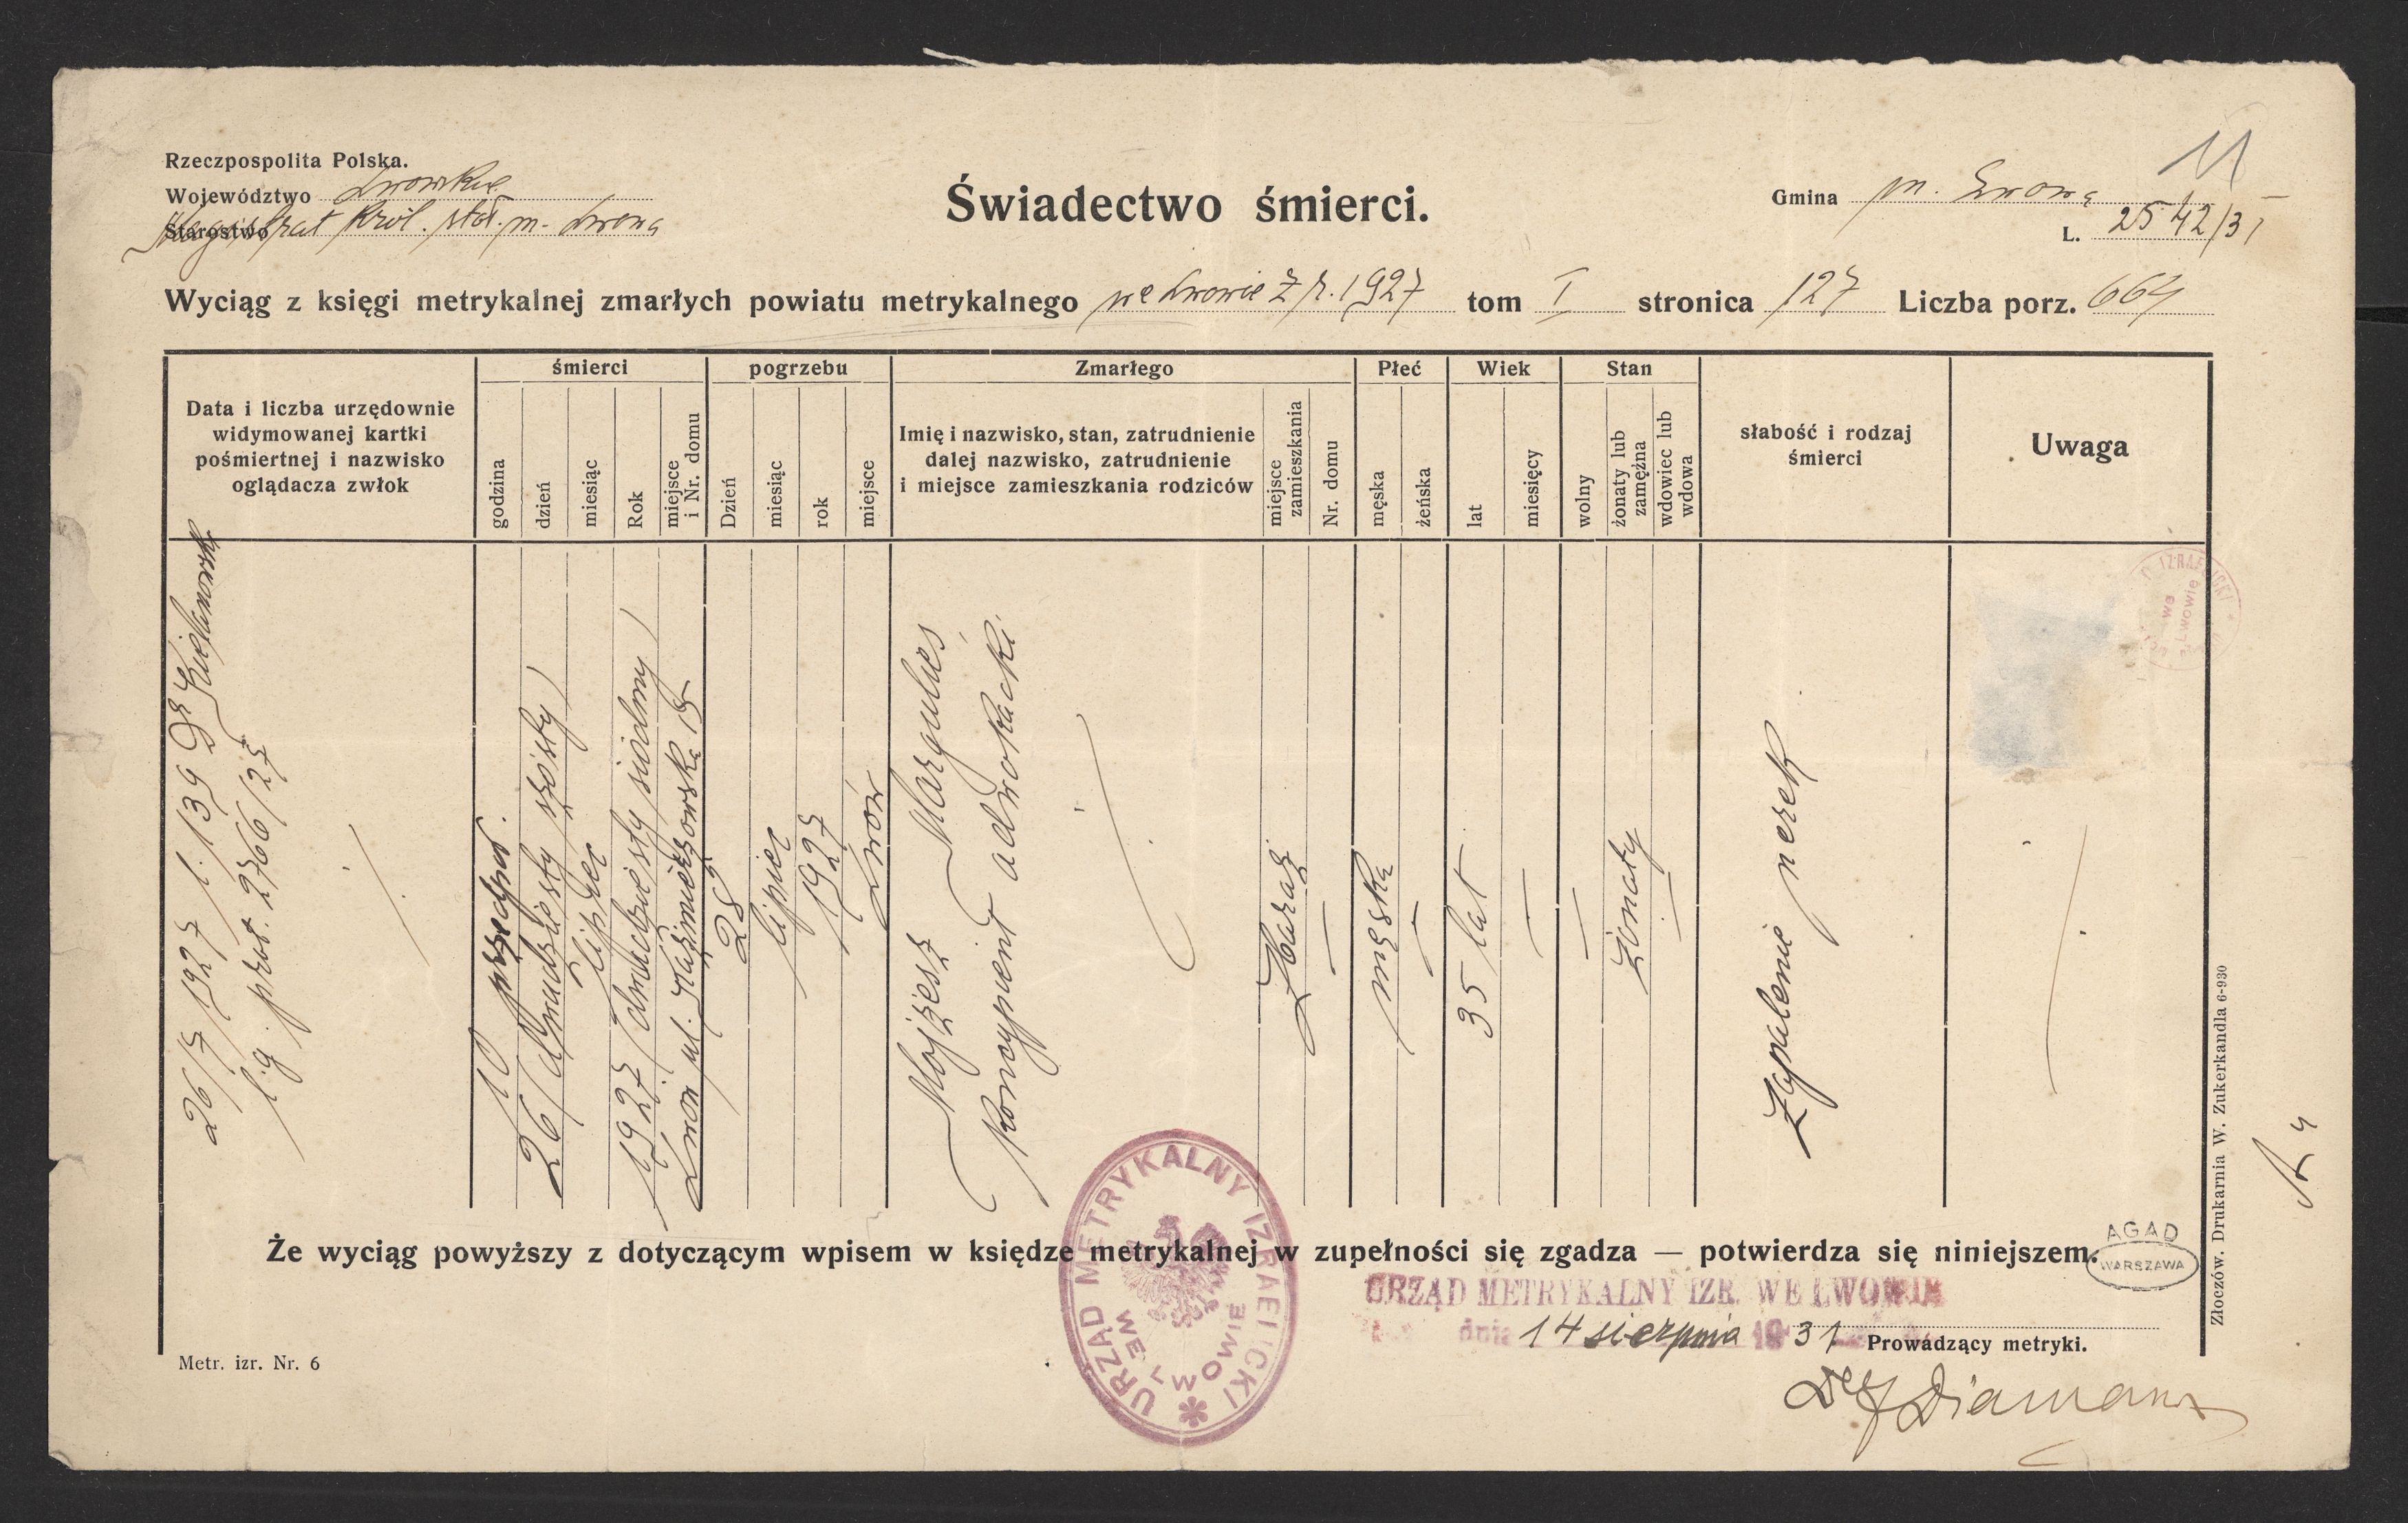 11
Rzeczpospolita Polska.
Województwo Lwowskie
Starostwo Magistrat król. stoł. m. Lwowa
Świadectwo śmierci.
Gmina m. Lwowa
L. 2542/31
Wyciąg z księgi metrykalnej zmarłych powiatu metrykalnego we Lwowie z r. 1927 tom I stronica 127 Liczba porz. 664
Data i liczba urzędownie
widymowanej kartki
pośmiertnej i nazwisko
oglądacza zwłok
śmierci
godzina
dzień
miesiąc
Rok
miejsce
i Nr. domu
pogrzebu
Dzień
miesiąc
rok
miejsce
Zmarłego
Imię i nazwisko, stan, zatrudnienie
dalej nazwisko, zatrudnienie
i miejsce zamieszkania rodziców
miejsce
zamieszkania
Nr. domu
Płeć
męska
żeńska
Wiek
lat
miesięcy
Stan
wolny
żonaty lub
zamężna
wdowiec lub
wdowa
słabość i rodzaj
śmierci
Uwaga
26/7 1927 l. 139 Dr
prot. 2766/27
10 przedpoł.
26 (dwudziesty szósty)
lipiec
1927 (dwudziesty siódmy)
Lwów ul. Kazimierzowska 15
28
lipiec
1927
Lwów
Mojżesz Margulies
koncypient adwokacki
Zbaraż
—
męska
—
35 lat
—
—
żonaty
—
Zapalenie nerek
IZRAELICKI
we
Lwowie
Że wyciąg powyższy z dotyczącym wpisem w księdze metrykalnej w zupełności się zgadza — potwierdza się niniejszem.
URZĄD METRYKALNY IZRAELICKI
WE LWOWIE
AGAD
WARSZAWA
URZĄD METRYKALNY IZR. WE LWOWIE
dnia 14 sierpnia 1931
Prowadzący metryki.
Diamant
Metr. izr. Nr. 6
Złoczów. Drukarnia W. Zukerkandla 6-930